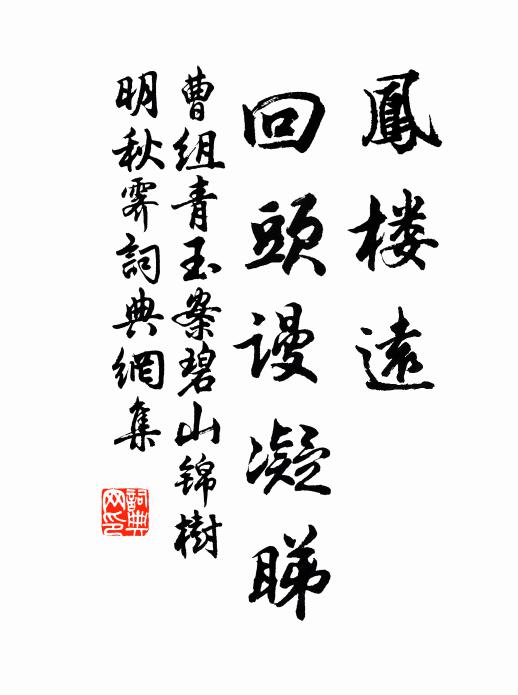 鳳楼遠
回頭謾凝睇
曹组青玉案碧山锦樹
明秋霽詞典網集
詞典
网印